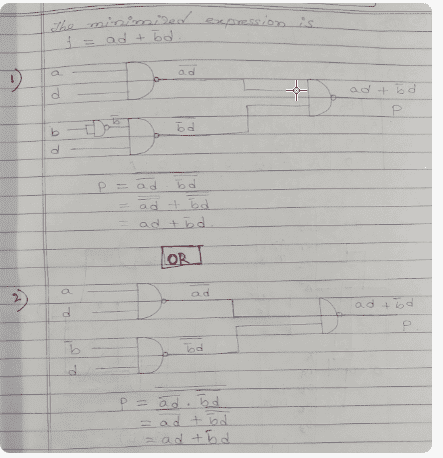 The minimized expression is
f = ad + b̅d
1)
a
d
a̅d̅
b
b̅
d
b̅d̅
ad + b̅d
P
P = a̅d̅ b̅d̅
= a̅d̅ + b̅d̅
= ad + b̅d.
OR
2)
a
d
a̅d̅
b̅
d
b̅d̅
ad + b̅d
P
P = a̅d̅ . b̅d̅
= ad + b̅d
= ad + b̅d